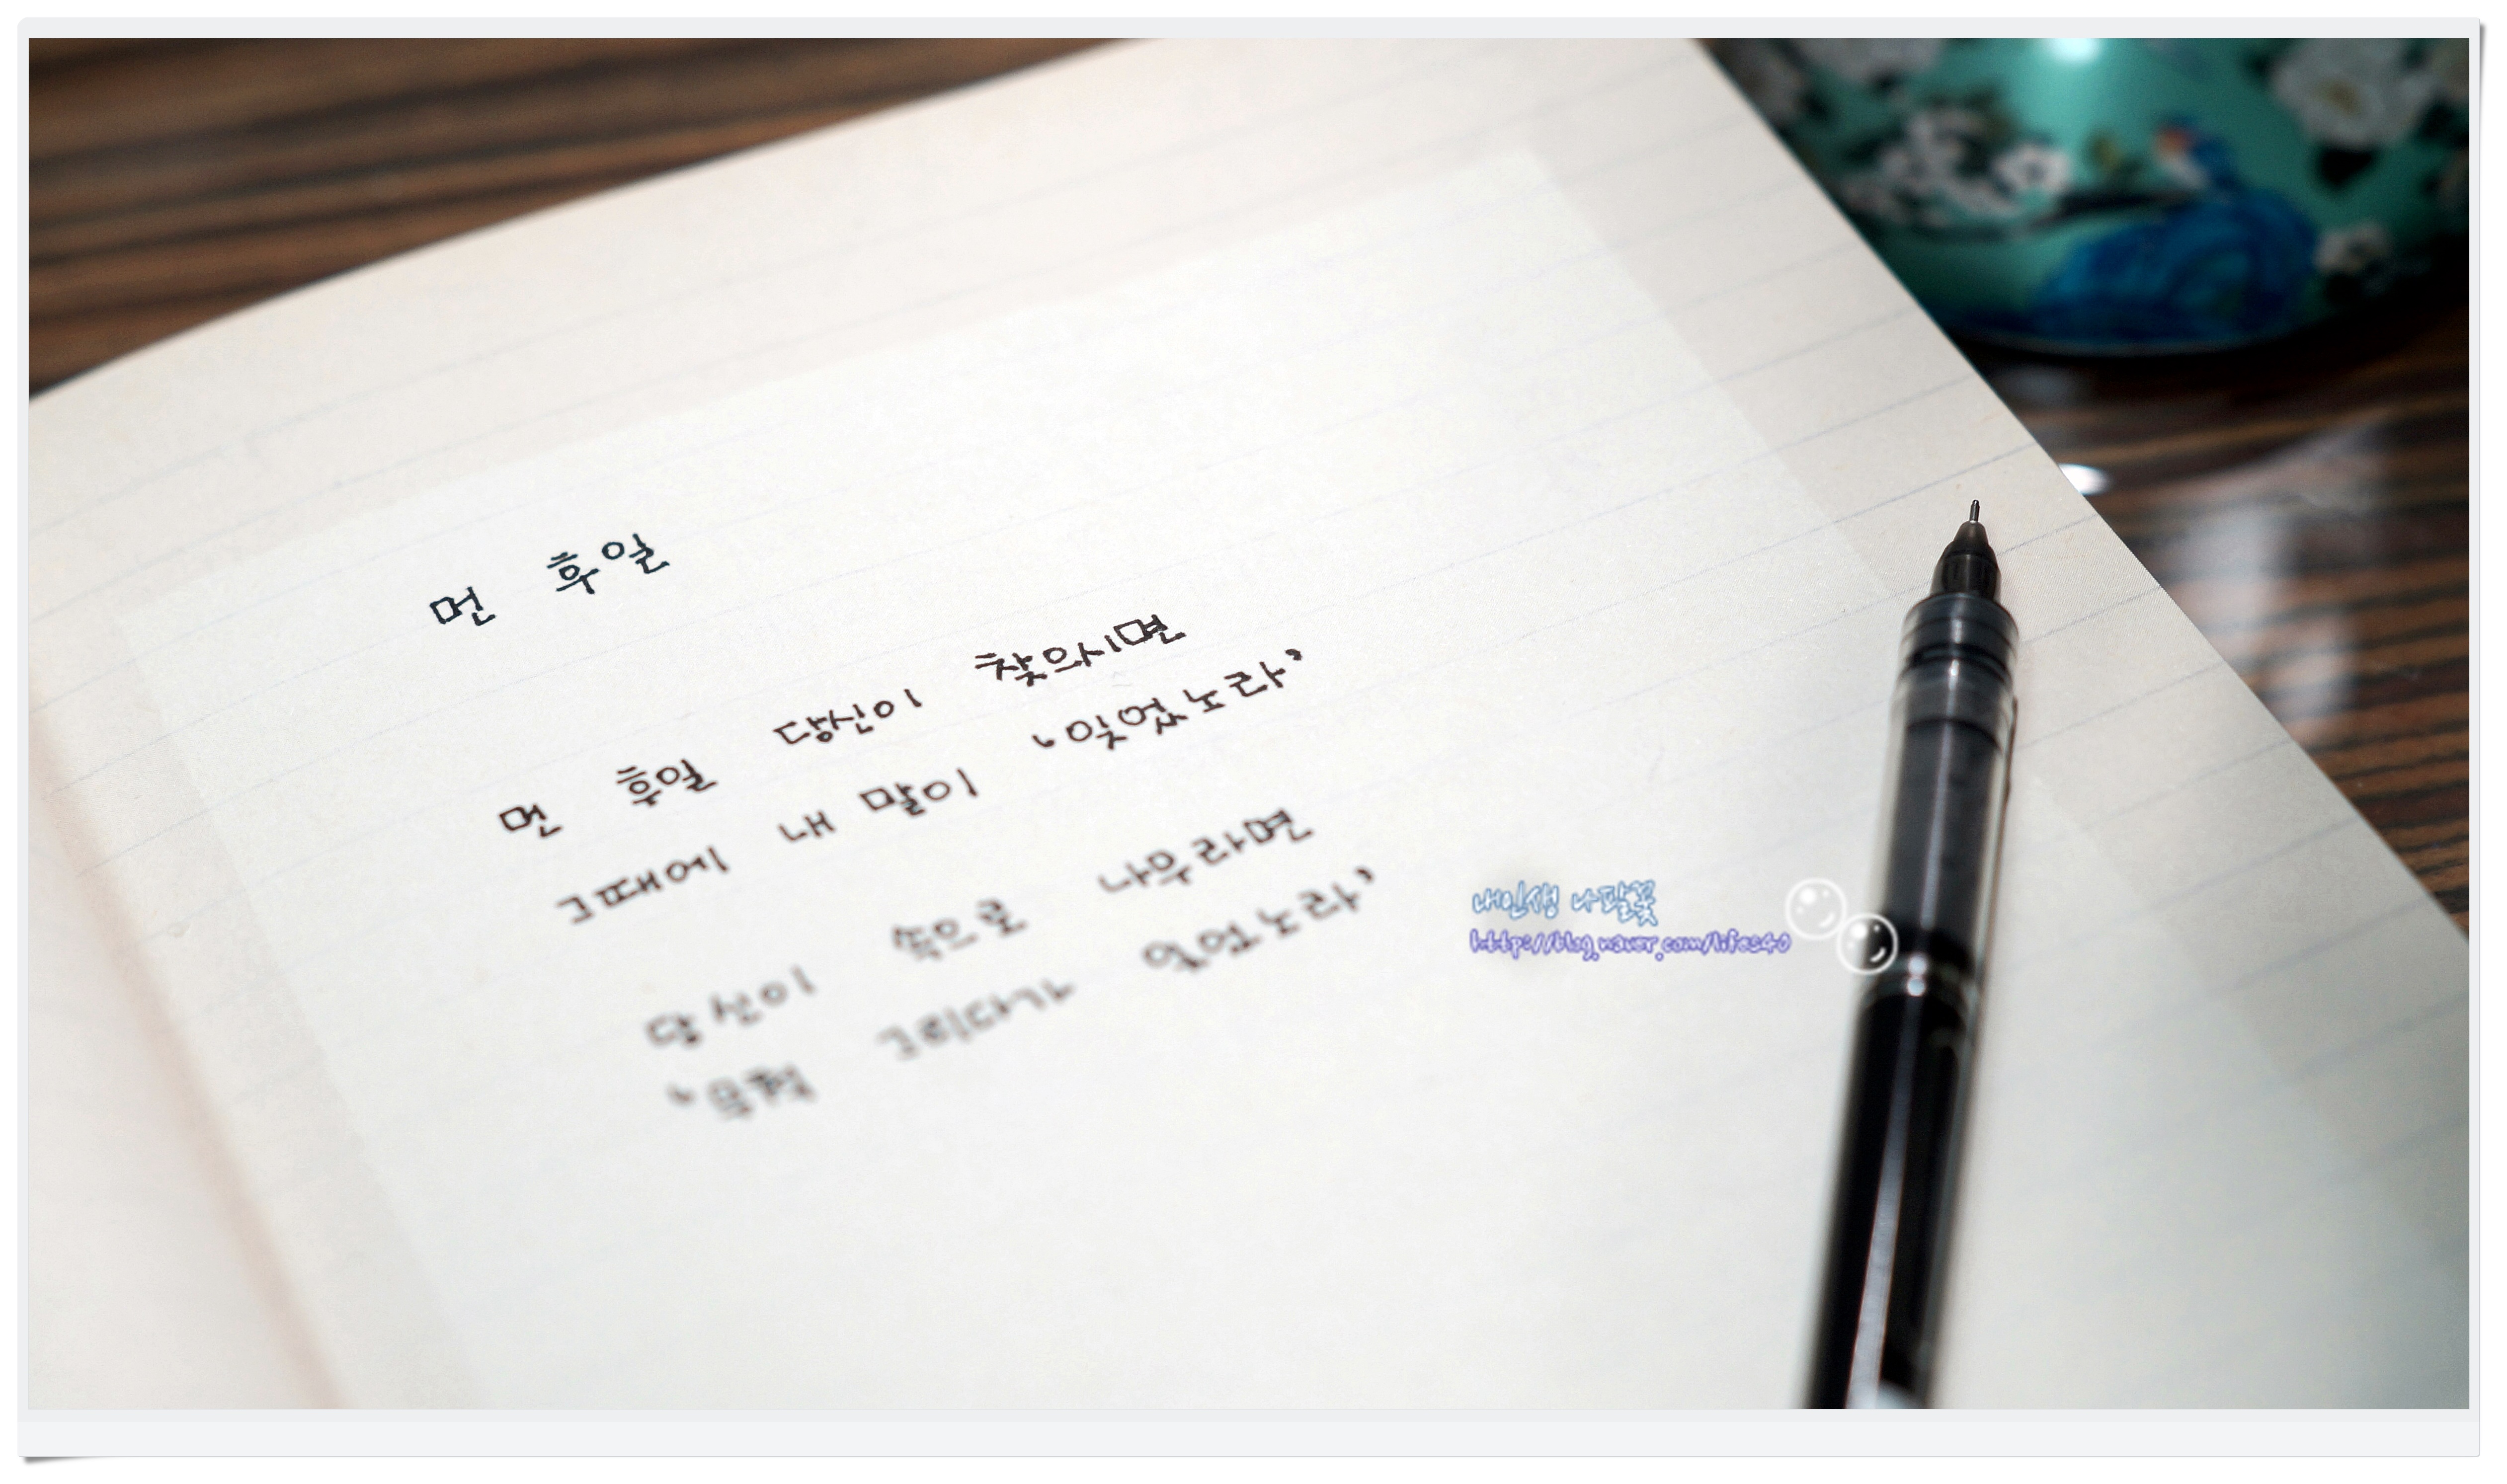 먼 후일
먼 후일 당신이 찾으시면
그때에 내 말이 '잊었노라'
당신이 속으로 나무라면
'무척 그리다가 잊었노라'
내인생 나팔꽃
http://blog.naver.com/lifes40